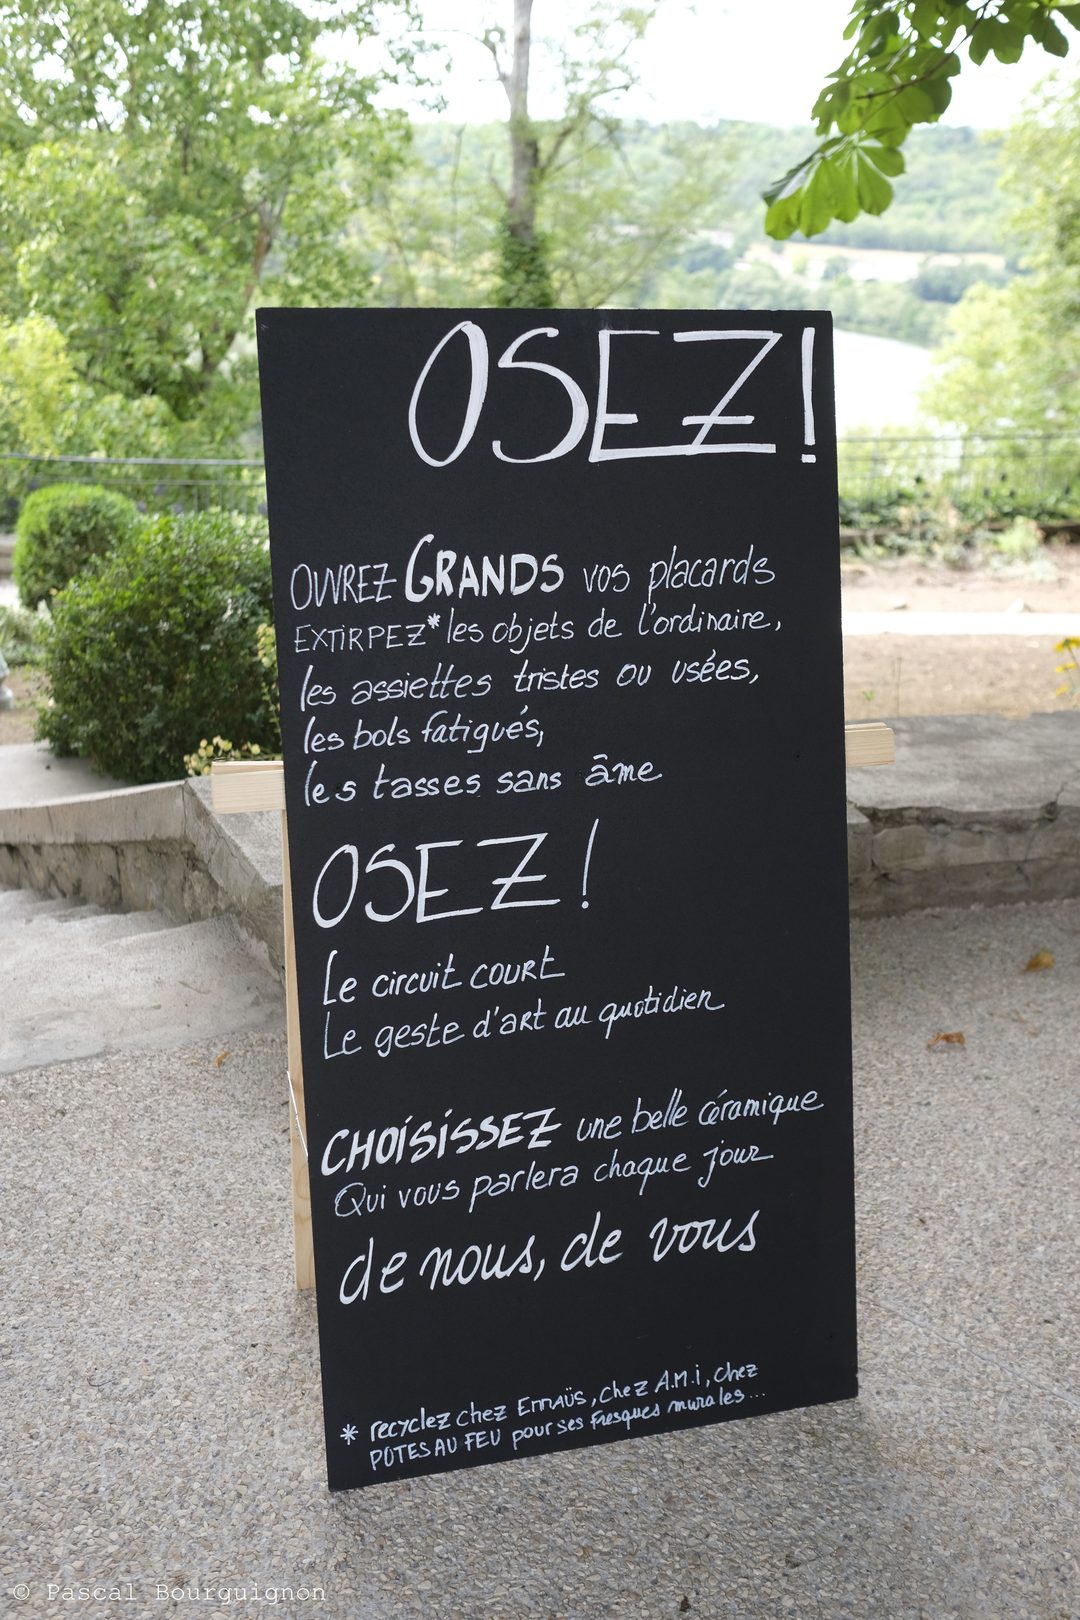 OSEZ!
OUVREZ GRANDS vos placards
EXTIRPEZ* les objets de l'ordinaire,
les assiettes tristes ou usées,
les bols fatigués,
les tasses sans âme
OSEZ!
Le circuit court
Le geste d'art au quotidien
CHOISISSEZ une belle céramique
Qui vous parlera chaque jour
de nous, de vous
* recyclez chez Emmaüs, chez A.M.i, chez
POTES AU FEU pour ses Fresques murales...
© Pascal Bourguignon